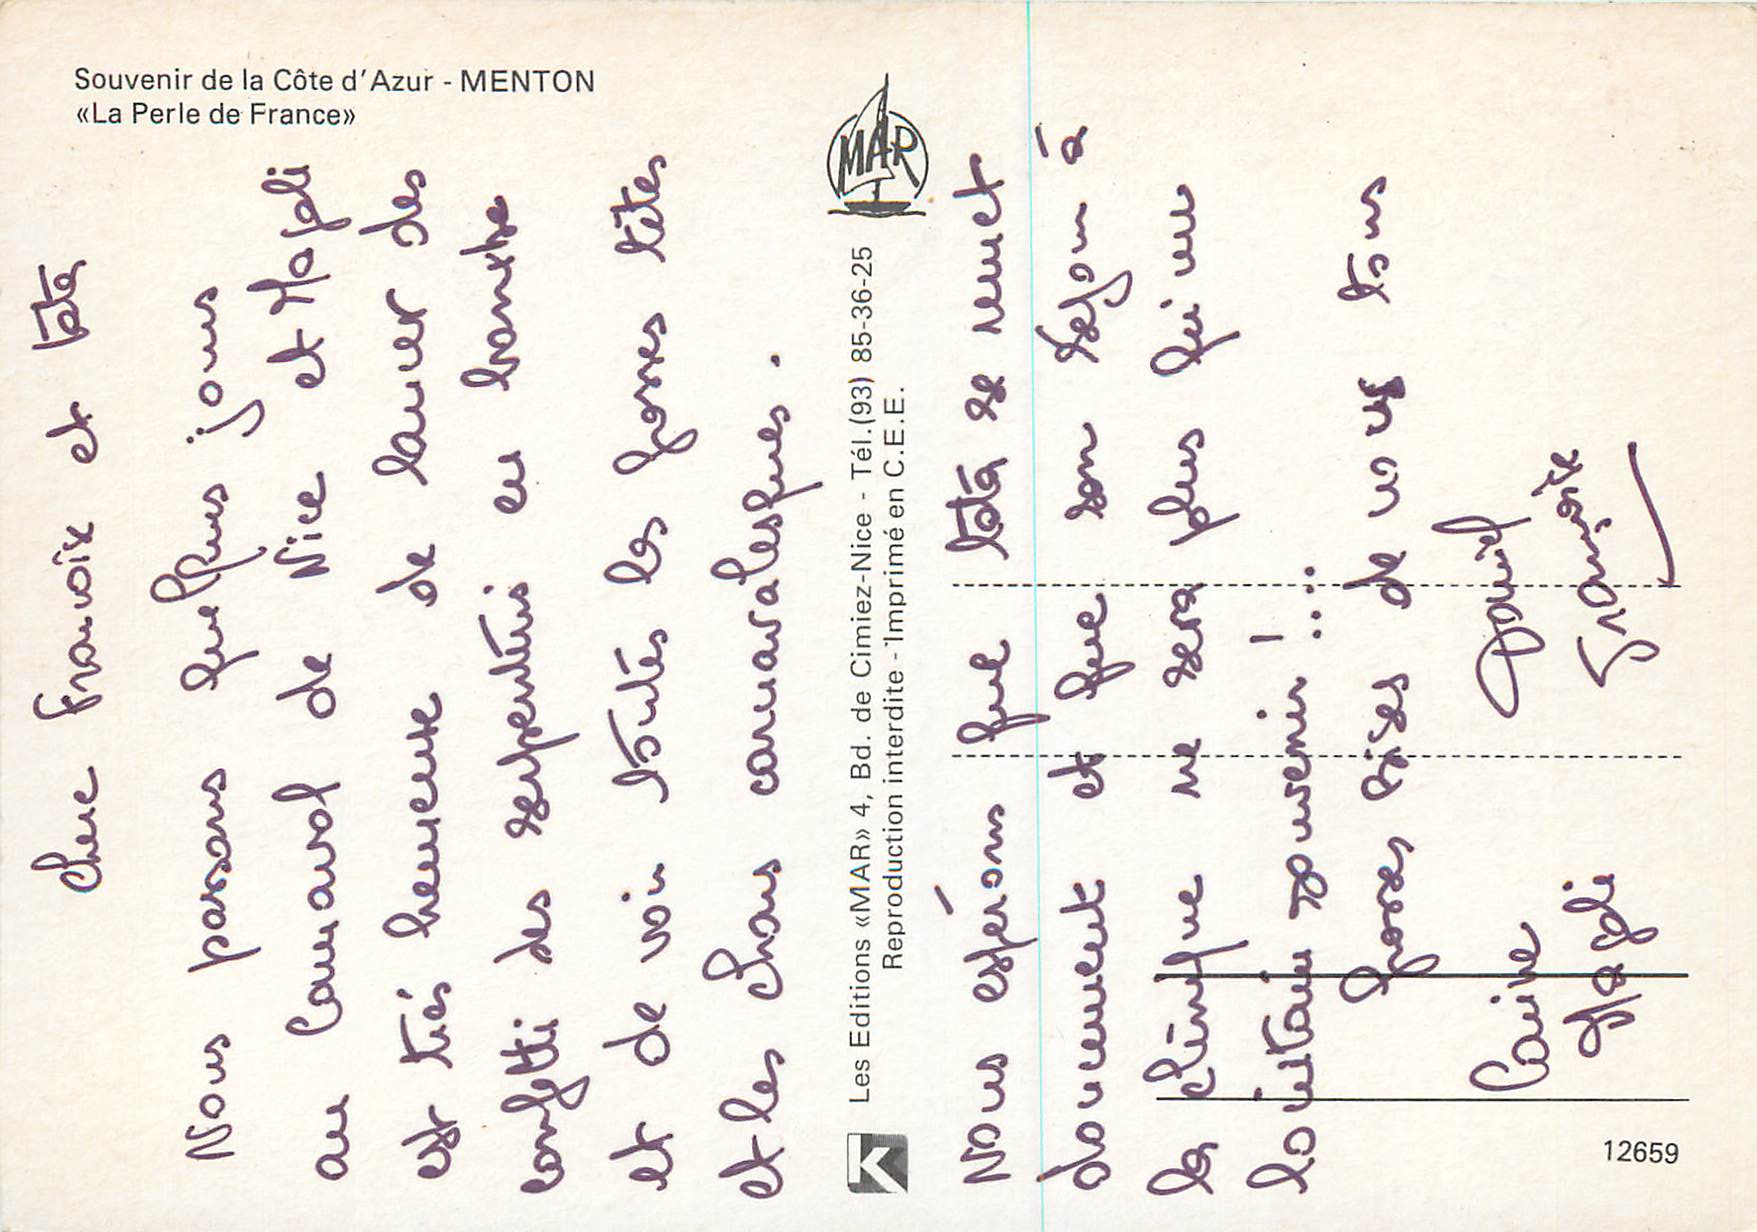 Souvenir de la Côte d'Azur - MENTON
«La Perle de France»
Chere Françoise et tata
Nous passons quelques jours
au Carnaval de Nice et Magali
est très heureuse de lancer des
confetti des serpentins en bombe
et de voir toutes les grosses têtes
et les chars carnavalesques.
MAR
Les Editions «MAR» 4, Bd. de Cimiez-Nice - Tél.(93) 85-36-25
Reproduction interdite - Imprimé en C.E.E.
K
Nous espérons que tata se remet
doucement et que son séjour à
la clinique ne sera plus qu'un
lointain souvenir !...
Grosses bises de nous tous
Carine Daniel
Magali Françoise
12659